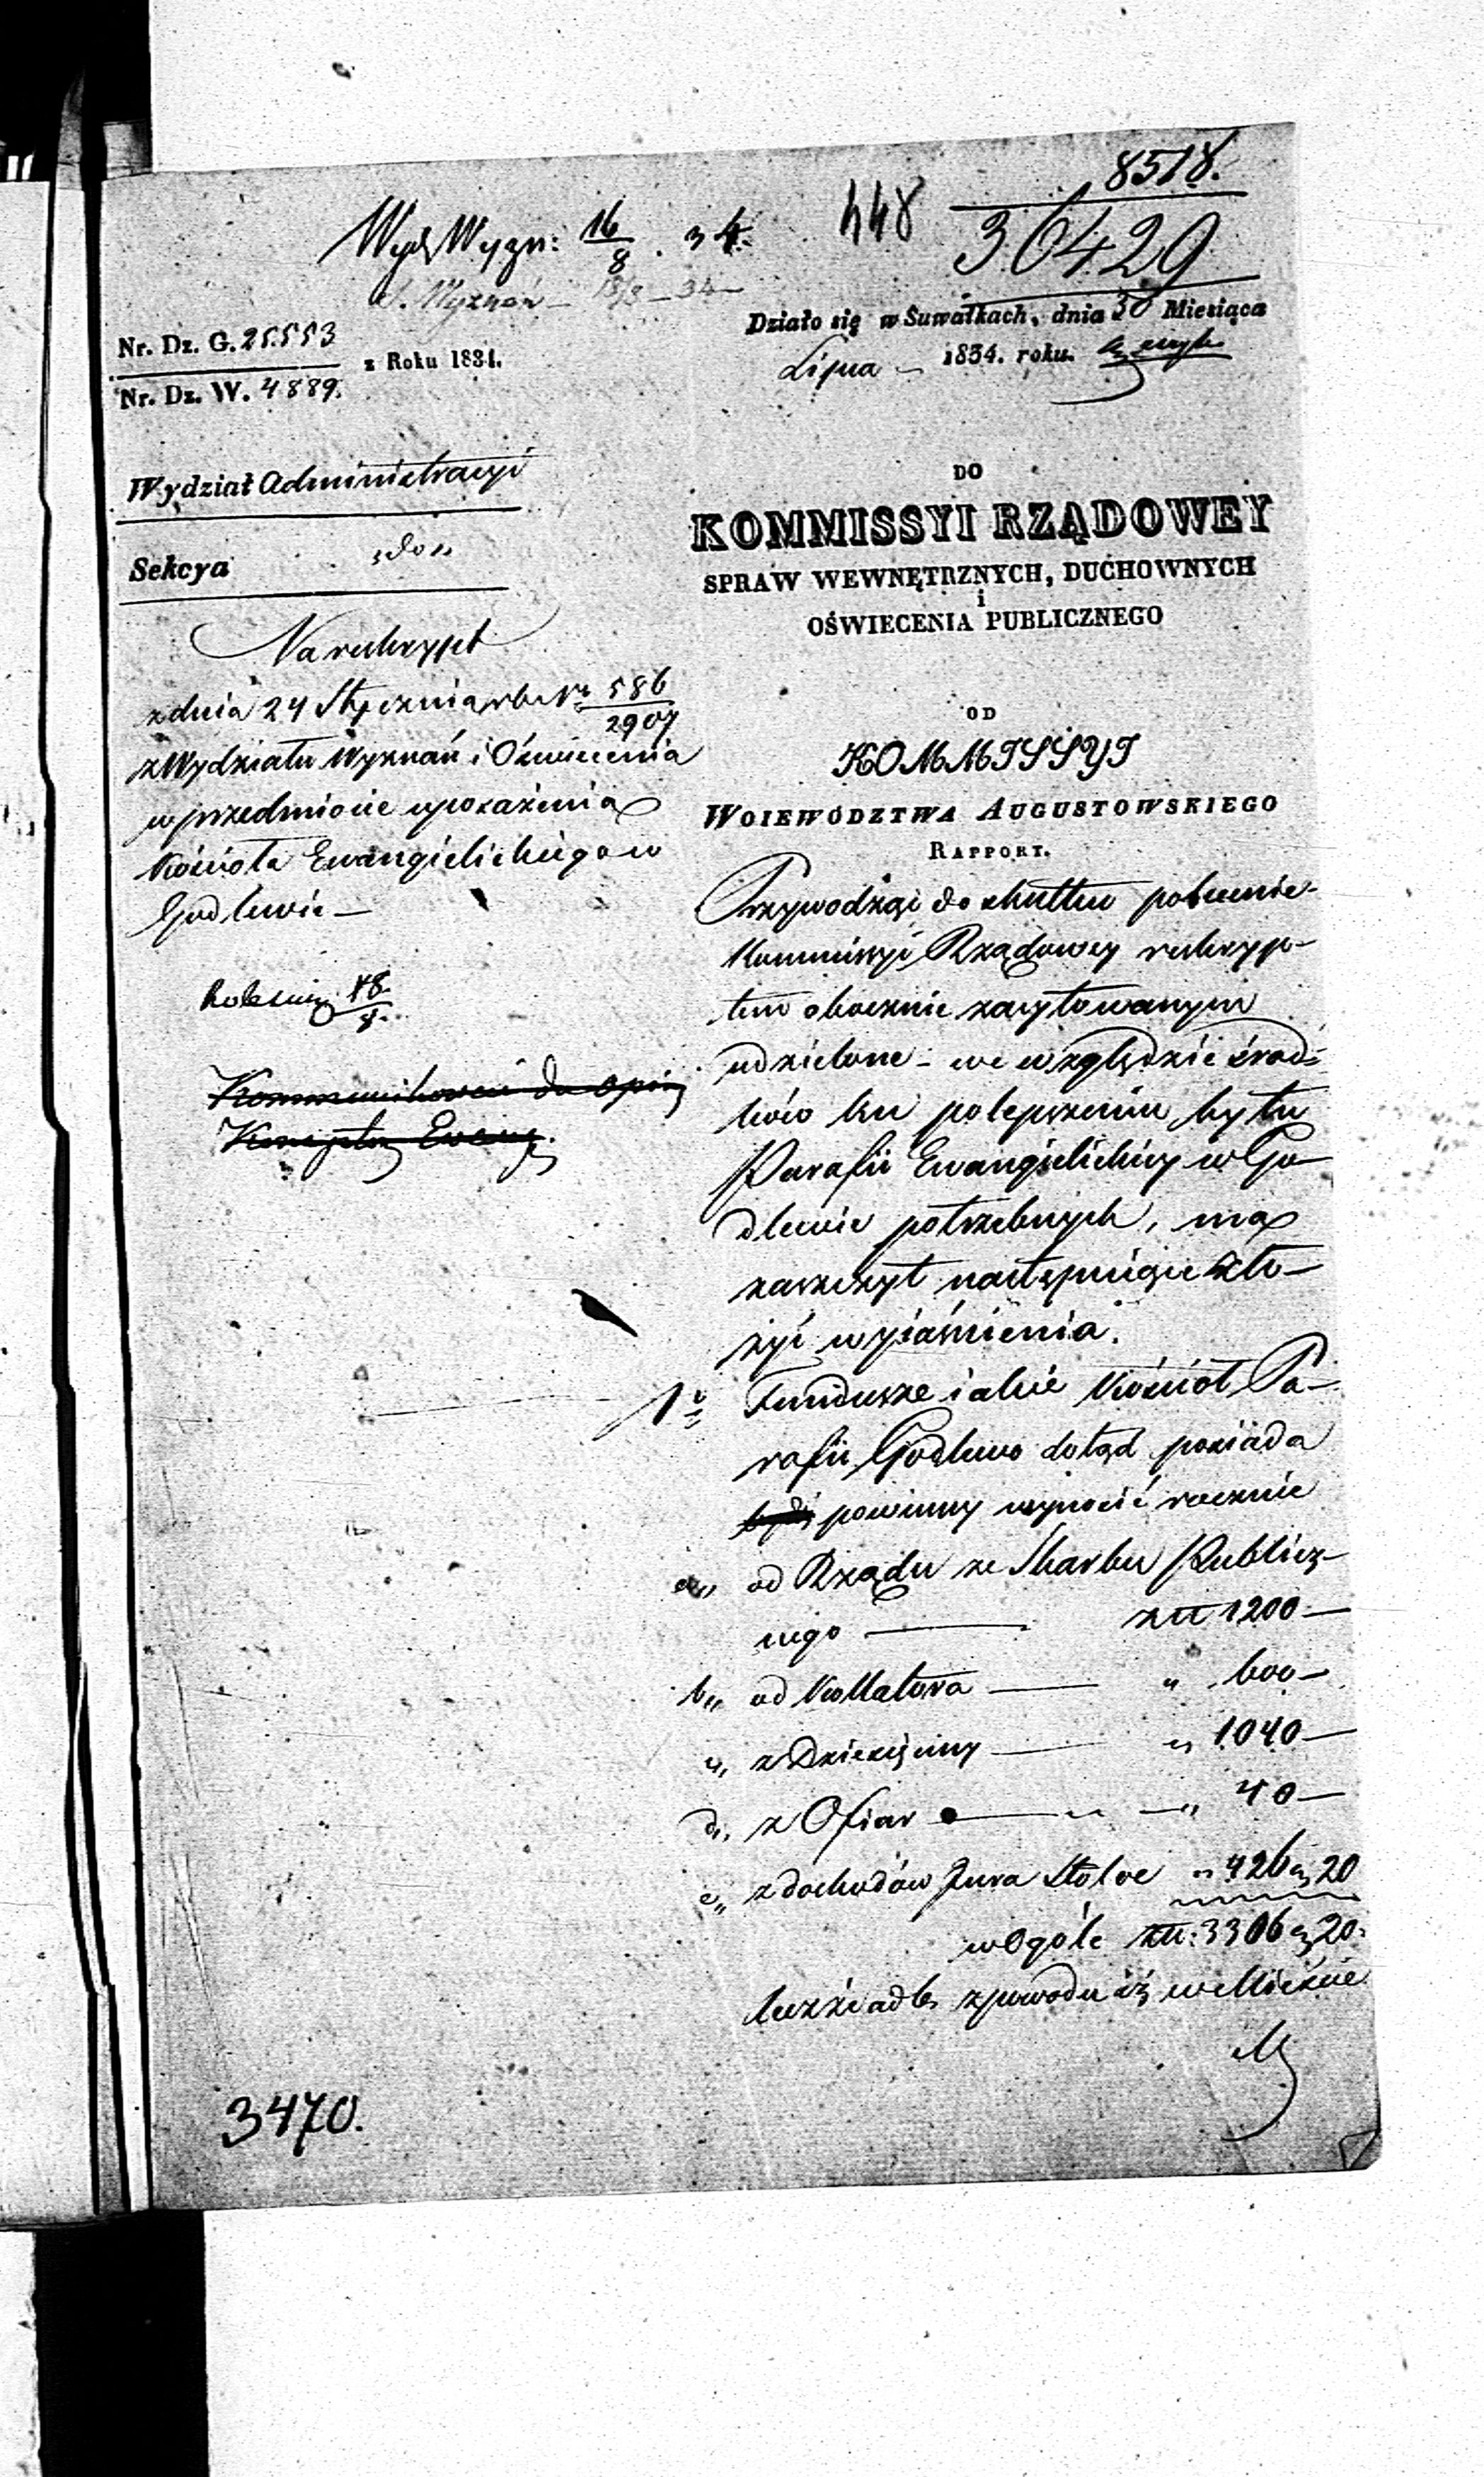 8518.
Wydz Wyzn: 16/8. 34. 448
36429
Wyznań 18/8 34
Działo się w Suwałkach, dnia 30 Miesiąca
Lipca 1834. roku.
Nr. Dz. G. 25553
z Roku 1834.
Nr. Dz. W. 4889.
Wydział Administracyi
Sekcya „do„
Na reskrypt
z dnia 24 Stycznia r b Nr 586/2907
z Wydziału Wyznań i Oświecenia
w przedmiocie uposażenia
Kościoła Ewangielickiego w
Godlewie —
18/8.
Kommunikować do opinij
Konsystorz Ewang.
DO
KOMMISSYI RZĄDOWEY
SPRAW WEWNĘTRZNYCH, DUCHOWNYCH
i
OŚWIECENIA PUBLICZNEGO
OD
KOMMISSYI
WOIEWÓDZTWA AUGUSTOWSKIEGO
RAPPORT.
Przywodząc do skutku polecenie
Kommissyi Rządowey reskryp-
tem obocznie zacytowanym
udzielone – we względzie środ-
ków ku polepszeniu bytu
Parafii Ewangielickiey w Go-
dlewie potrzebnych, ma
zaszczyt następuiące zło-
żyć wyiaśnienia.
1o Fundusze iakie Kościół Pa-
rafii Godlewo dotąd posiada
powinny wynosić rocznie
a„ od Rządu ze Skarbu Publicz-
nego — złł 1200 —
b„ od Kollatora — „ 600 —
c„ z Dziesięciny — „ 1040 —
d„ z Ofiar — „ 40 —
e„ z dochodów Jura Stolae „ 426 „ 20
w Ogóle złł: 3306 „ 20.
lecz że ad b, z powodu iż w Mieście
3470.